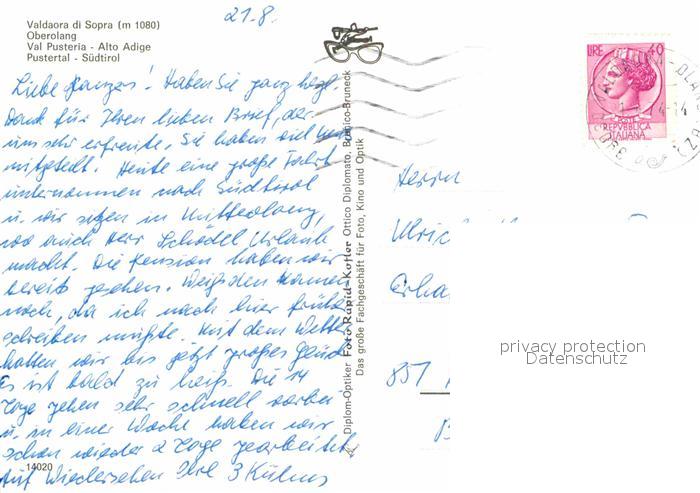 21.8.
Valdaora di Sopra (m 1080)
Oberolang
Val Pusteria - Alto Adige
Pustertal - Südtirol
Liebe ! Haben Sie ganz herzl.
Dank für Ihren lieben Brief, der
uns sehr erfreute. Sie haben viel
mitgeteilt. Heute eine große Fahrt
unternommen nach Südtirol
u. wir sitzen in Mitterolang,
wo auch Herr Schödel Urlaub
macht. Die Pension haben wir
bereits gesehen. den Namen
noch, da ich nach hier früher
schreiben mußte. Mit dem Wetter
hatten wir bis jetzt großes Glück
Es ist bald zu heiß. Die 14
Tage gehen sehr schnell vorbei
u. in einer Woche haben wir
schon wieder 2 Tage gearbeitet
Auf Wiedersehen Ihre 3
14020
Diplom-Optiker Foto Rapid-Kofler Ottico Diplomato, Brunico-Bruneck
Das große Fachgeschäft für Foto, Kino und Optik
LIRE 40
POSTE
REPVBBLICA
ITALIANA
Herrn
Ulric
Erha
851
privacy protection
Datenschutz